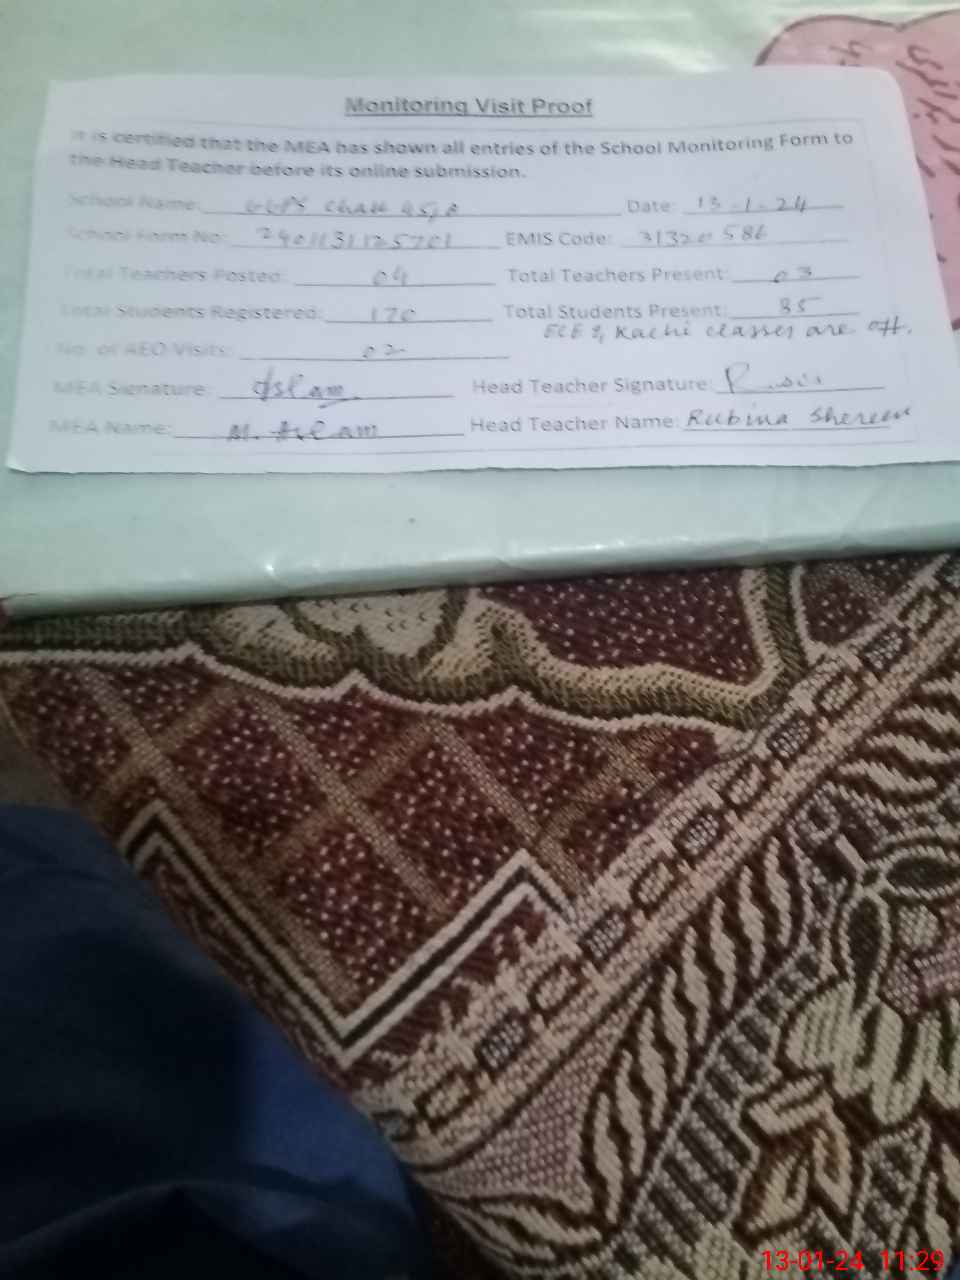 Monitoring Visit Proof
It is certified that the MEA has shown all entries of the School Monitoring Form to
the Head Teacher before its online submission.
School Name: GGPS Chak 45/A Date: 13-1-24
School Form No: 2401131125701 EMIS Code: 31320586
Total Teachers Posted: 04 Total Teachers Present: 03
Total Students Registered: 170 Total Students Present: 85
ECE & Kachi classes are off.
No. of AEO Visits: 02
MEA Signature: Aslam Head Teacher Signature:
MEA Name: M. Aslam Head Teacher Name: Rubina Shereen
13-01-24 11:29